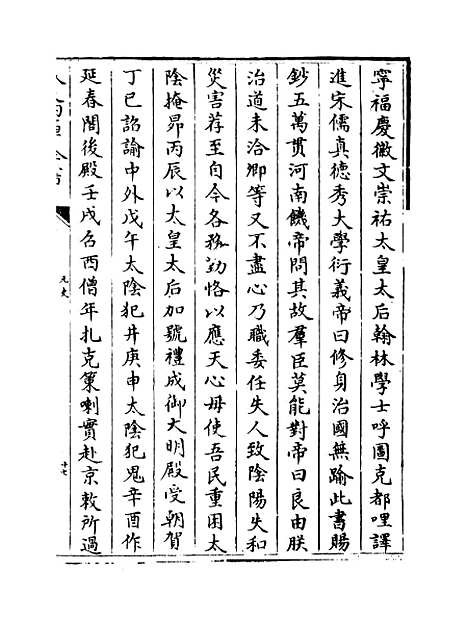 寧福慶徽文崇祐太皇太后翰林學士呼圖克都哩譯
進宋儒真德秀大學衍義帝曰修身治國無踰此書賜
鈔五萬貫河南饑帝問其故羣臣莫能對帝曰良由朕
治道未洽卿等又不盡心乃職委任失人致陰陽失和
災害荐至自今各務勤恪以應天心毋使吾民重困太
陰掩昴丙辰以太皇太后加號禮成御大明殿受朝賀
丁巳詔諭中外戊午太陰犯井庚申太陰犯鬼辛酉作
延春閣後殿壬戌召西僧年扎克策喇實赴京敕所過
元史
十七